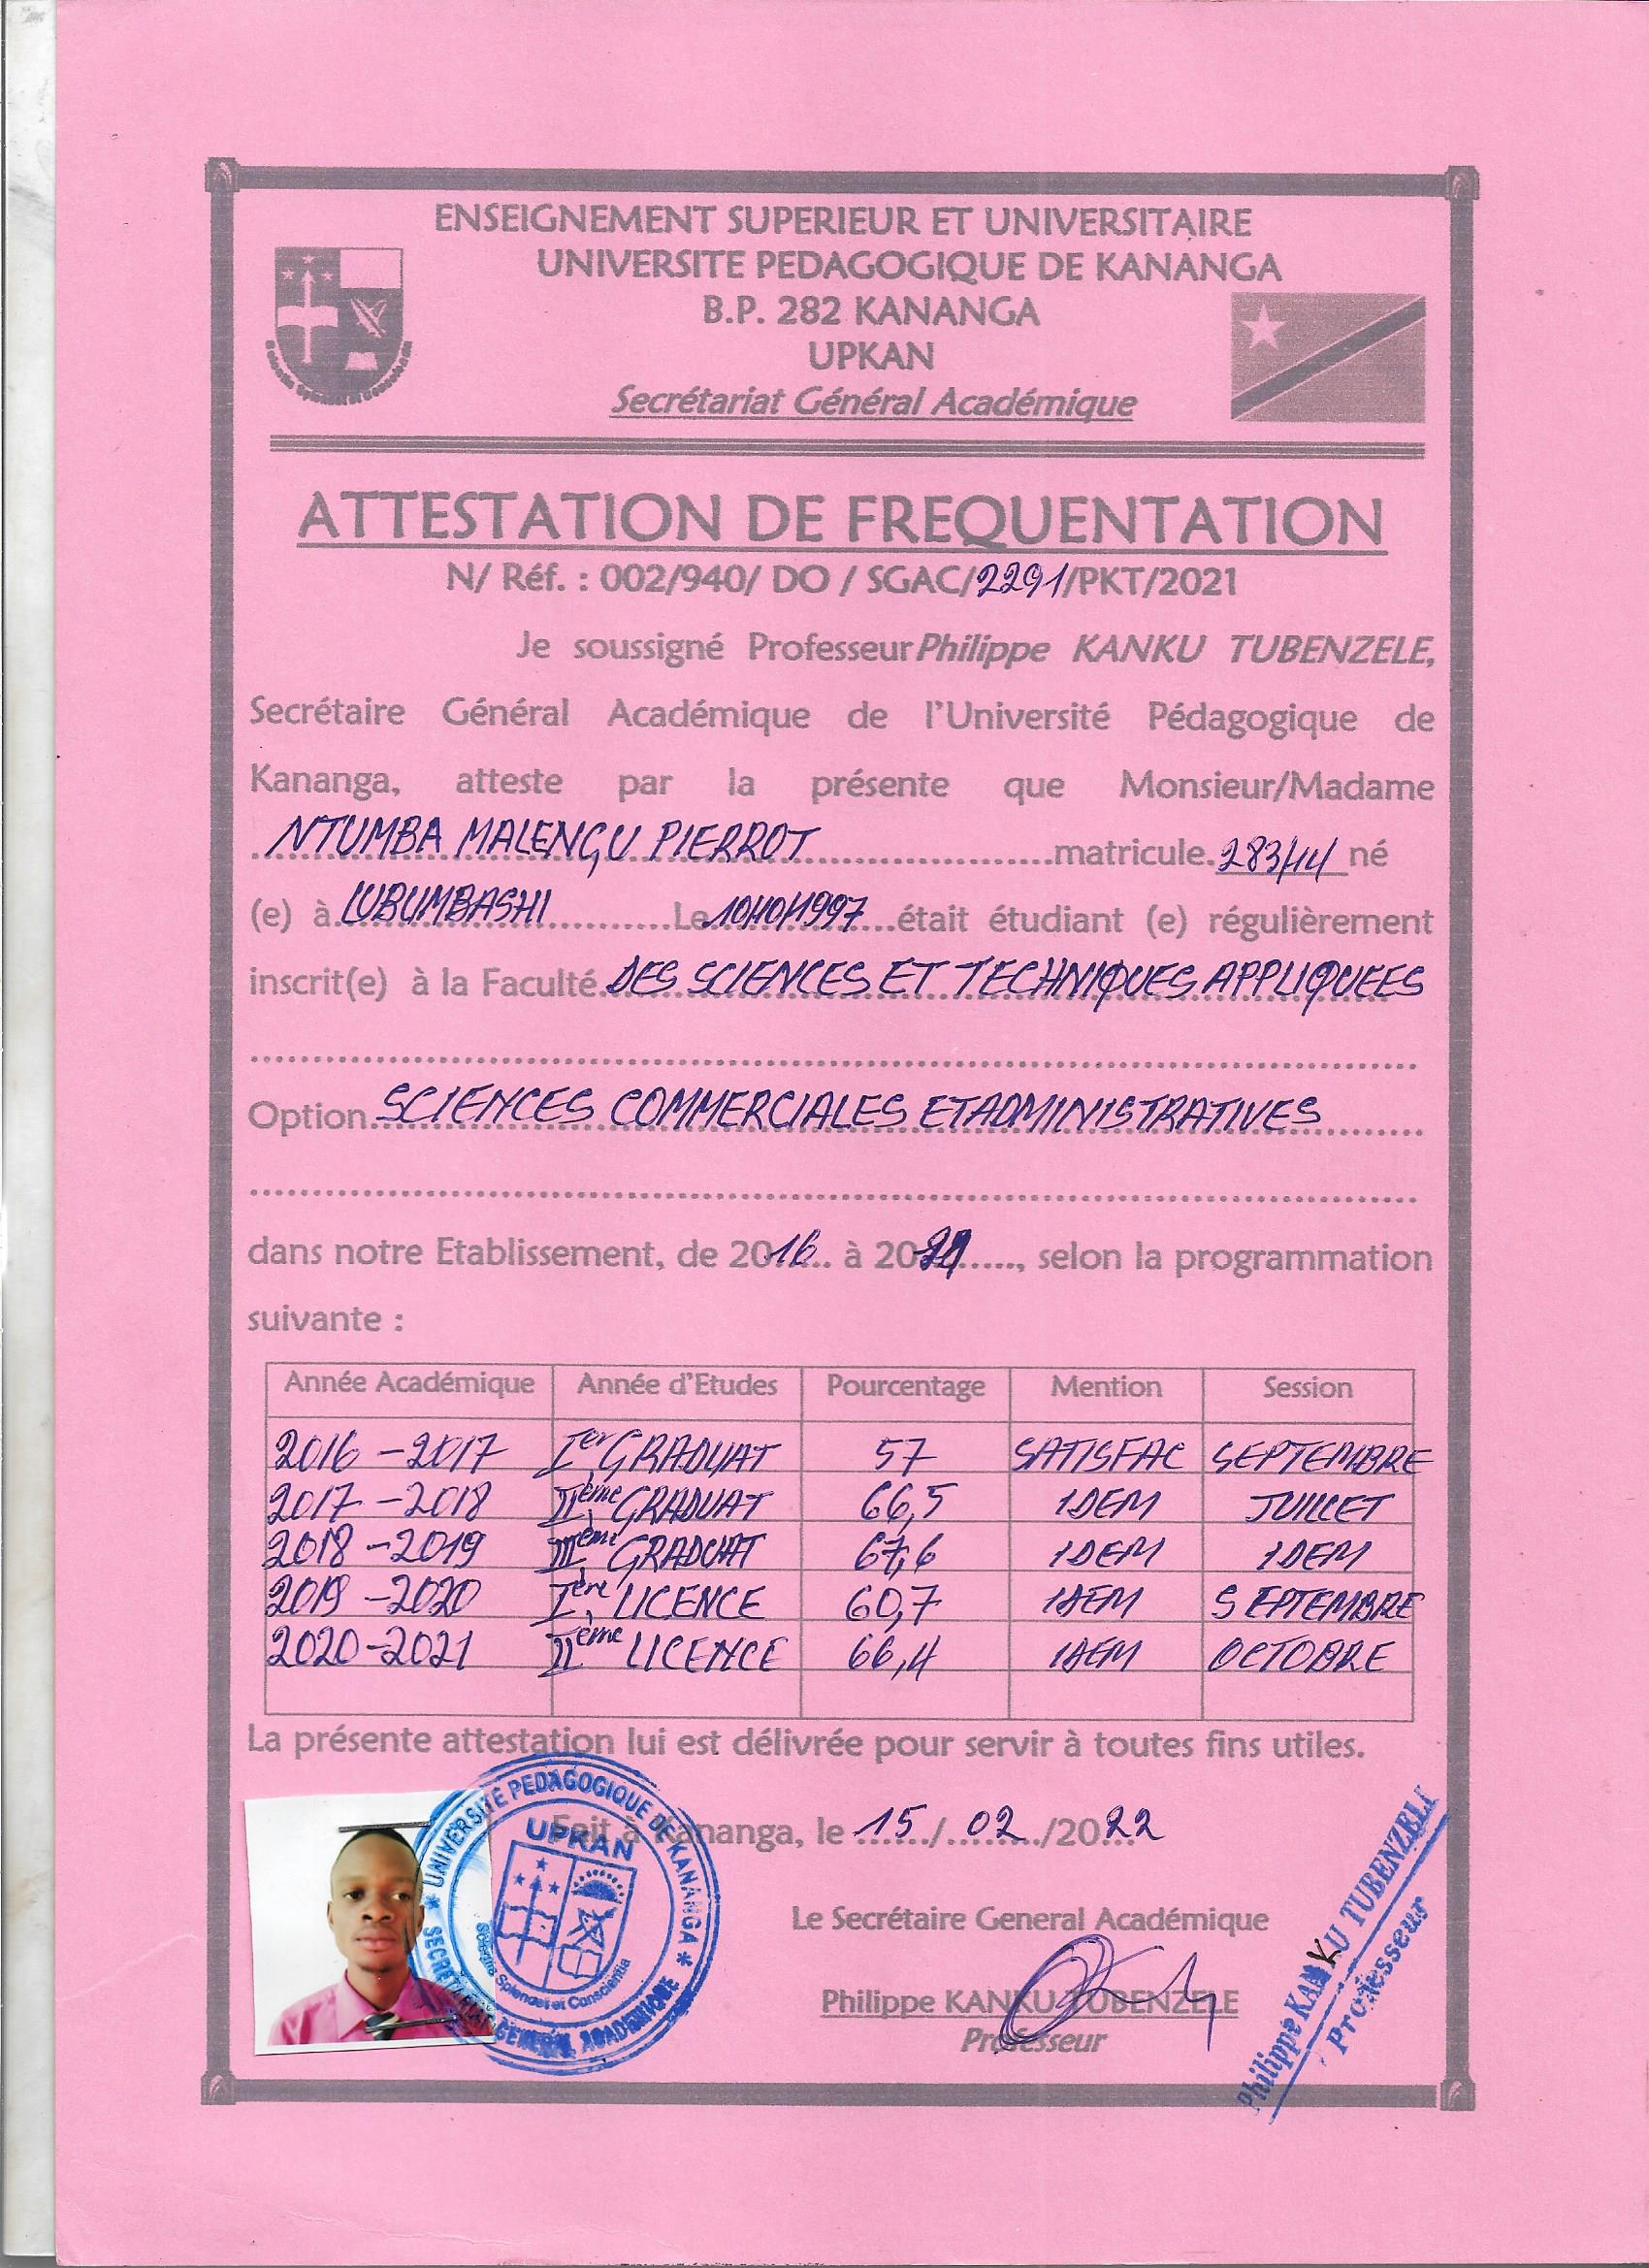 ENSEIGNEMENT SUPERIEUR ET UNIVERSITAIRE
UNIVERSITE PEDAGOGIQUE DE KANANGA
B.P. 282 KANANGA
UPKAN
Secrétariat Général Académique
ATTESTATION DE FREQUENTATION
N/ Réf. : 002/940/ DO / SGAC/2291/PKT/2021
Je soussigné Professeur Philippe KANKU TUBENZELE,
Secrétaire Général Académique de l'Université Pédagogique de
Kananga, atteste par la présente que Monsieur/Madame
NTUMBA MALENGU PIERROT matricule. 283/14 né
(e) à LUBUMBASHI Le 10/10/1997 était étudiant (e) régulièrement
inscrit(e) à la Faculté DES SCIENCES ET TECHNIQUES APPLIQUEES
Option SCIENCES COMMERCIALES ET ADMINISTRATIVES
dans notre Etablissement, de 2016 à 20, selon la programmation
suivante :
Année Académique Année d'Etudes Pourcentage Mention Session
2016 - 2017 Ier GRADUAT 57 SATISFAC SEPTEMBRE
2017 - 2018 IIème GRADUAT 66,5 IDEM JUILLET
2018 - 2019 IIIème GRADUAT 67,6 IDEM IDEM
2019 - 2020 Ière LICENCE 60,7 IDEM SEPTEMBRE
2020-2021 IIème LICENCE 66,4 IDEM OCTOBRE
La présente attestation lui est délivrée pour servir à toutes fins utiles.
Fait à Kananga, le 15/02/2022
UNIVERSITE PEDAGOGIQUE DE KANANGA
UPKAN
Scientia Splendet et Conscientia
SECRETARIAT GENERAL ACADEMIQUE
Le Secrétaire General Académique
Philippe KANKU TUBENZELE
Professeur
Philippe KANKU TUBENZELI
Professeur